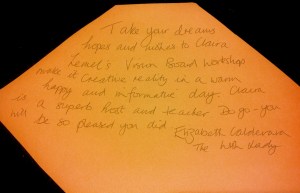 Take your dreams
hopes and wishes to Clara
's Vision Board Workshop
make it creative reality in a warm
happy and informative day. Clara
is a superb host and teacher. Do go - you
will be so pleased you did
Elizabeth
The Lady